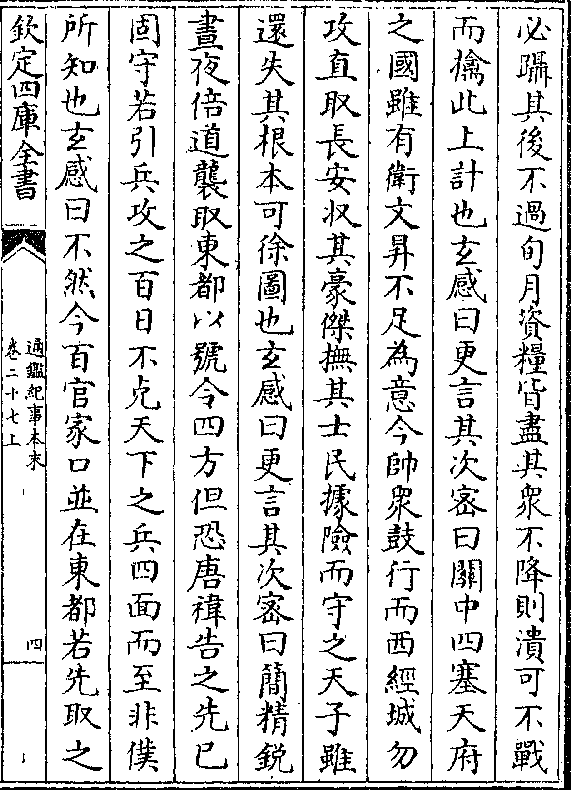 必躡其後不過旬月資糧皆盡其衆不降則潰可不戰
而擒此上計也玄感曰更言其次宻曰關中四塞天府
之國雖有衛文昇不足為意今帥衆鼓行而西經城勿
攻直取長安收其豪傑撫其士民據險而守之天子雖
還失其根本可徐圖也玄感曰更言其次宻曰簡精鋭
晝夜倍道襲取東都以號令四方但恐唐禕告之先已
固守若引兵攻之百日不克天下之兵四面而至非僕
所知也玄感曰不然今百官家口並在東都若先取之
欽定四庫全書
通鑑紀事本末
卷二十七上
四